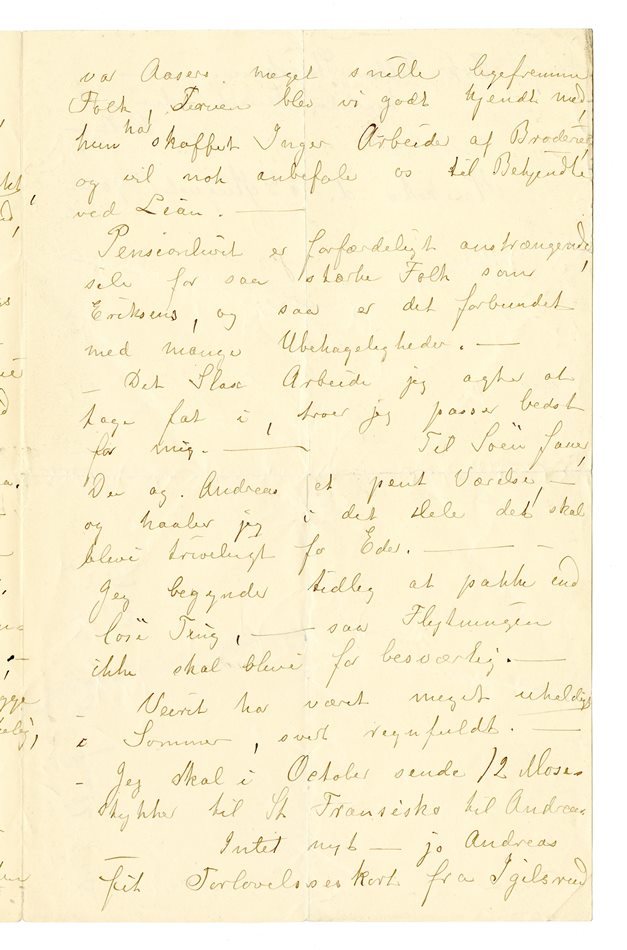 var Aasers. meget snille ligefremme
Folk, Fruen blev vi godt kjendt med,
hun har skaffet Inger Arbeide af Broderie,
og vil nok anbefale os til Bekjendte
ved Lian. —
Pensionlivet er forfærdeligt anstrængende,
selv for saa stærke Folk som
Eriksens, og saa er det forbundet
med mange Ubehageligheder. —
— Det Slags Arbeide jeg agter at
tage fat i, troer jeg passer bedst
for mig. — Til Søen faaer,
Du og. Andreas et pent Værelse, —
og haaber jeg i det Hele det skal
blive triveligt for Eder. —
Jeg begynder tidlig at pakke ind
löse Ting, — saa Flytningen
ikke skal blive for besværlig. —
— Veiret har været meget uheldigt
i Sommer, svært regnfuldt. —
— Jeg skal i October sende 12 Mose-
stykker til St Fransisko til Andreas.
Intet nyt — jo Andreas
fik Forlovelsseskort fra Igilsrud